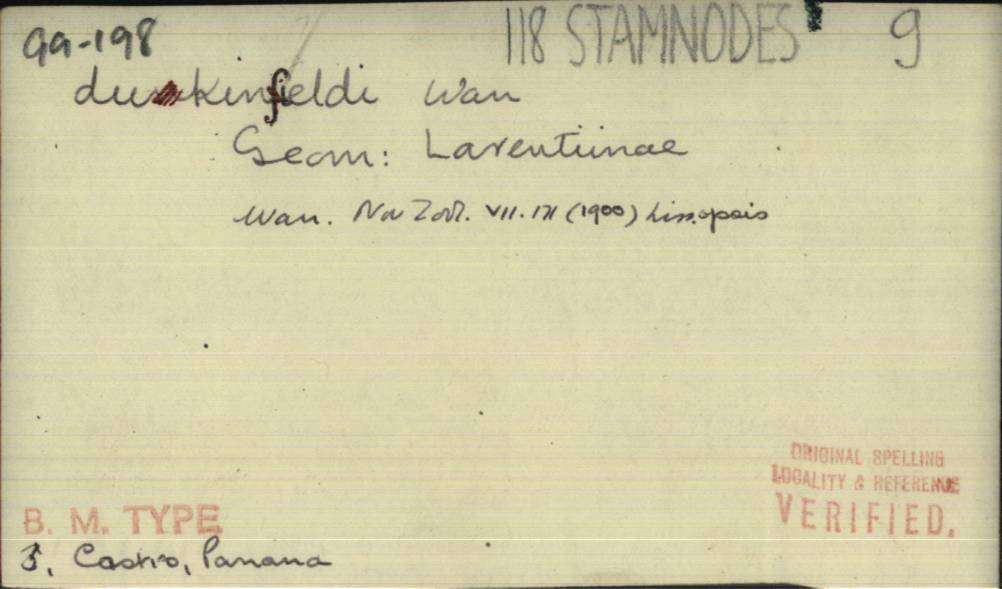 99-198
118 STAMNODES 9
duckinfieldi Warr
Geom: Larentiinae
Warr. Nov Zool. VII. 171 (1900) Lissopsis
ORIGINAL SPELLING
LOCALITY & REFERENCE
VERIFIED.
B. M. TYPE
Castro, Parana